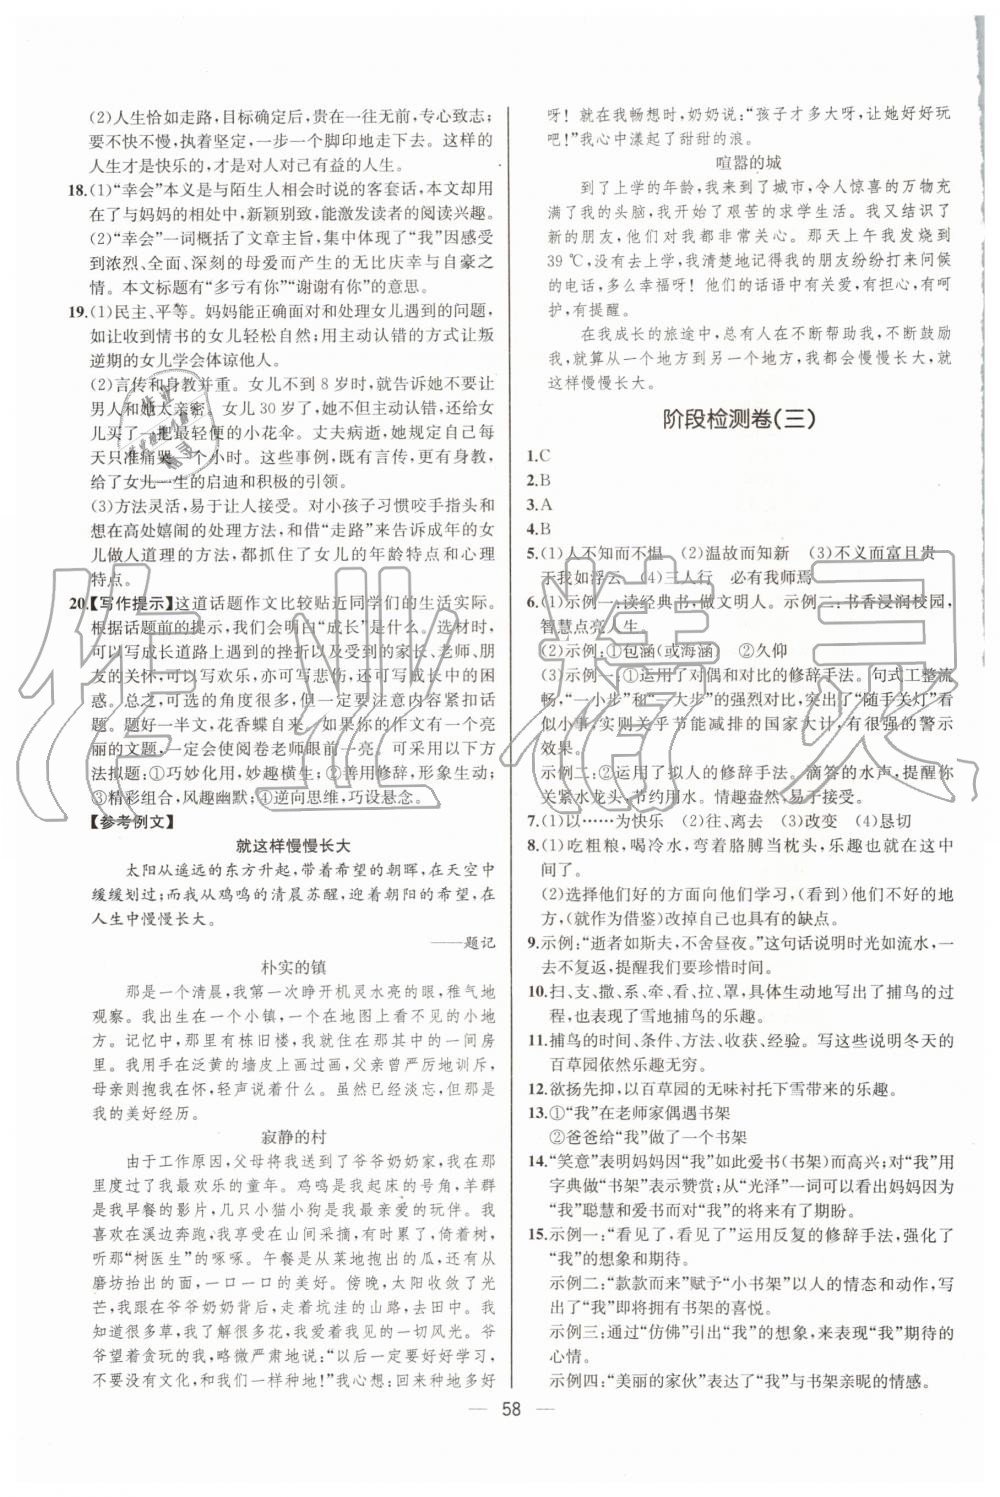 (2)人生恰如走路,目标确定后,贵在一往无前,专心致志;
要不快不慢,执着坚定,一步一个脚印地走下去。这样的
人生才是快乐的,才是对人对己有益的人生。
18.(1)“幸会”本义是与陌生人相会时说的客套话,本文却用
在了与妈妈的相处中,新颖别致,能激发读者的阅读兴趣。
(2)“幸会”一词概括了文章主旨,集中体现了“我”因感受
到浓烈、全面、深刻的母爱而产生的无比庆幸与自豪之
情。本文标题有“多亏有你”“谢谢有你”的意思。
19.(1)民主、平等。妈妈能正确面对和处理女儿遇到的问题,
如让收到情书的女儿轻松自然;用主动认错的方式让叛
逆期的女儿学会体谅他人。
(2)言传和身教并重。女儿不到 8 岁时,就告诉她不要让
男人和她太亲密。女儿 30 岁了,不但主动认错,还给女
儿买了一把最轻便的小花伞。丈夫病逝,她规定自己每
天只准痛哭一个小时。这些事例,既有言传,更有身教,
给了女儿一生的启迪和积极的引领。
(3)方法灵活,易于让人接受。对小孩子习惯咬手指头和
想在高处嬉闹的处理方法,和借“走路”来告诉成年的女
儿做人道理的方法,都抓住了女儿的年龄特点和心理
特点。
20.【写作提示】这道话题作文比较贴近同学们的生活实际。
根据话题前的提示,我们会明白“成长”是什么。选材时,
可以写成长道路上遇到的挫折以及受到的家长、老师、朋
友的关怀,可以写欢乐,亦可写悲伤,还可写成长中的困
惑。总之,可选的角度很多,但一定要注意内容紧扣话
题。题好一半文,花香蝶自来。如果你的作文有一个亮
丽的文题,一定会使阅卷老师眼前一亮。可采用以下方
法拟题:①巧妙化用,妙趣横生;②善用修辞,形象生动;
③精彩组合,风趣幽默;④逆向思维,巧设悬念。
【参考例文】
就这样慢慢长大
太阳从遥远的东方升起,带着希望的朝晖,在天空中
缓缓划过;而我从鸡鸣的清晨苏醒,迎着朝阳的希望,在
人生中慢慢长大。
——题记
朴实的镇
那是一个清晨,我第一次睁开机灵水亮的眼,稚气地
观察。我出生在一个小镇,一个在地图上看不见的小地
方。记忆中,那里有栋旧楼,我就住在其中的一间房
里。我用铅笔在泛黄的墙皮上画过画,父亲曾严厉地训斥,
母亲则抱我在怀,轻声说着什么。虽然已经淡忘,但却是我
的美好经历。
寂静的村
由于工作原因,父母将我送到了爷爷奶奶家,在那里
度过了我最欢乐的童年。鸡鸣是我起床的号角,羊群
是我早餐的影片,几只小猫小狗是我最亲密的玩伴。我
喜欢在溪边奔跑,我享受在山间采摘,有时,倚着树,
听那“树医生”的啄啄。午餐是从菜地抱出的瓜,还有从
磨坊抬出的面,一口一口的美好。傍晚,太阳收敛了光
芒,我跟在爷爷奶奶背后,走过坑洼的山路,去田中。我
知道很多草,我了解很多花,我爱着我见的一切风光。爷
爷望着贪玩的我,略微严肃地说:“以后一定要好好学习,
不要没有文化,和我们一样种地!”我心想:种地多好
呀!就在我畅想时,奶奶说:“孩子才多大呀,让她好好玩
吧!”我心中漾起了甜甜的浪。
喧嚣的城
到了上学的年龄,我来到了城市,令人惊喜的万物充
满了我的头脑,我开始了艰苦的求学生活。我又结识了
新的朋友,他们对我都非常关心。那天上午我发烧到
39 ℃,没去上学,我清楚地记得我的朋友纷纷打来问候
的电话,多么幸福呀!他们的话语中有关爱,有担心,有呵
护,有提醒。
在我成长的旅途中,总有人在不断帮助我,不断鼓励
我,就算从一个地方到另一个地方,我都会慢慢长大,就
这样慢慢长大。
阶段检测卷(三)
1.C
2.B
3.A
4.B
5.(1)人不知而不愠 (2)温故而知新 (3)不义而富且贵
于我如浮云 (4)三人行 必有我师焉
6.(1)示例一:读经典书,做文明人。示例二:书香浸润校园,
智慧点亮人生。
(2)示例:①包涵(或海涵) ②久仰
(3)示例一:①运用了对偶和对比的修辞手法。句式工整流
畅,“一小步”和“一大步”的强烈对比,突出了“随手关灯”看
似小事,实则关乎节能减排的国家大计,有很强的警示
效果。
示例二:②运用了拟人的修辞手法。滴答的水声,提醒你
关紧水龙头,节约用水。情趣盎然,易于接受。
7.(1)以……为快乐 (2)往、离去 (3)改变 (4)恳切
8.(1)吃粗粮,喝冷水,弯着胳膊当枕头,乐趣也就在这中
间了。
(2)选择他们好的方面向他们学习,(看到)他们不好的地
方,(就作为借鉴)改掉自己也存在的缺点。
9.示例:“逝者如斯夫,不舍昼夜。”这句话说明时光如流水,一
去不复返,提醒我们要珍惜时间。
10.扫、支、撒、系、牵、看、拉、罩,具体生动地写出了捕鸟的过
程,也表现了雪地捕鸟的乐趣。
11.捕鸟的时间、条件、方法、收获、经验。写这些说明冬天的
百草园依然乐趣无穷。
12.欲扬先抑,以百草园的无味衬托下雪带来的乐趣。
13.①“我”在老师家偶遇书架
②爸爸给“我”做了一个书架
14.“笑意”表明妈妈因“我”如此爱书(书架)而高兴;对“我”用
字典做“书架”表示赞赏;从“光泽”一词可以看出妈妈因为
“我”聪慧和爱书而对“我”的将来有了期盼。
15.示例一:“看见了,看见了”运用反复的修辞手法,强化了
“我”的想象和期待。
示例二:“款款而来”赋予“小书架”以人的情态和动作,写
出了“我”即将拥有书架的喜悦。
示例三:通过“仿佛”引出“我”的想象,来表现“我”期待的
心情。
示例四:“美丽的家伙”表达了“我”与书架亲昵的情感。
— 58 —
作业精灵